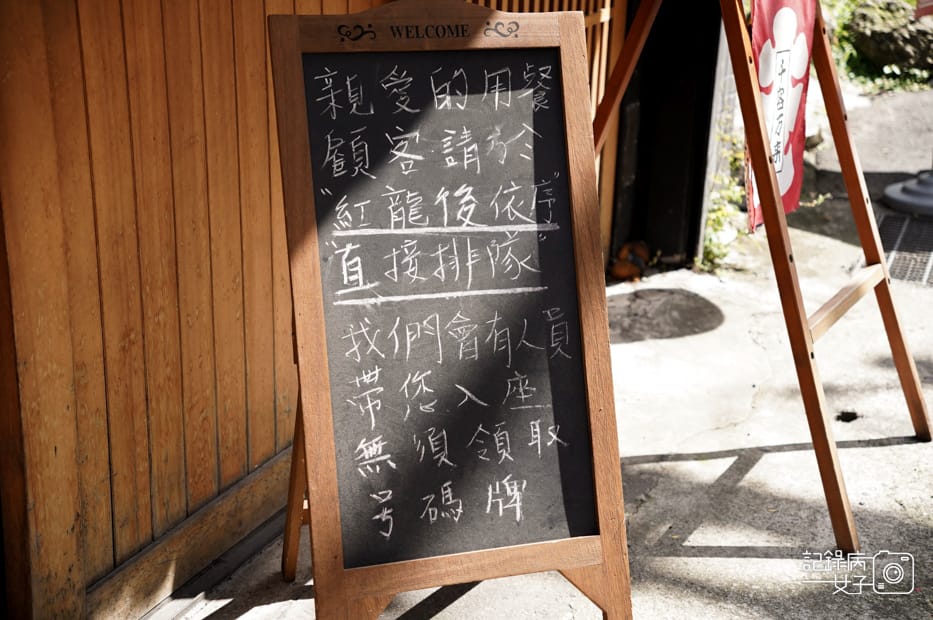 WELCOME
親愛的用餐
顧客請於
"紅龍後依序"
"直接排隊"
我們會有人員
帶您入座
無須領取
号碼牌
千客万来
記錄病
女子